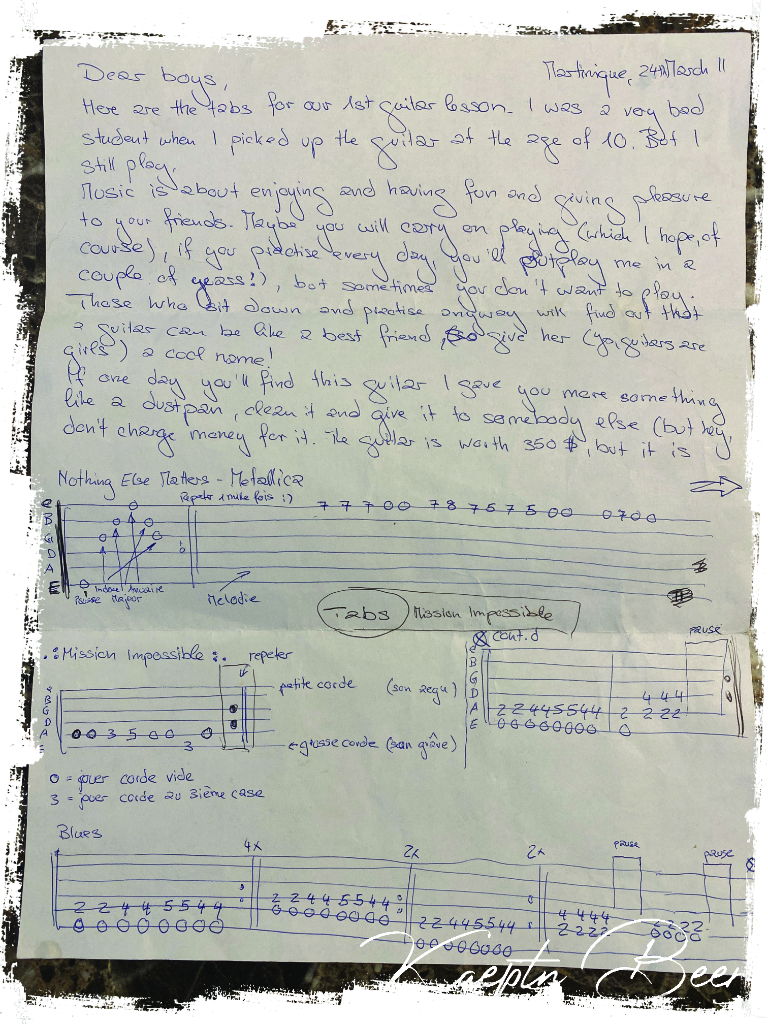 Martinique, 24th March 11
Dear boys,
Here are the tabs for our 1st guitar lesson. I was a very bad
student when I picked up the guitar at the age of 10. But I
still play.
Music is about enjoying and having fun and giving pleasure
to your friends. Maybe you will carry on playing (which I hope, of
course), if you practise every day, you'll outplay me in a
couple of years!), but sometimes you don't want to play.
Those who sit down and practise anyway will find out that
a guitar can be like a best friend, so give her (yo, guitars are
girls) a cool name!
If one day you'll find this guitar I gave you mere something
like a dustpan, clean it and give it to somebody else (but hey,
don't charge money for it. The guitar is worth 350 $, but it is
Nothing Else Matters - Metallica
Repeter mille fois :)
e B G D A E
7 7 7 0 0 7 8 7 5 7 5 0 0 0 7 0 0
Pouce Index Majeur Annulaire
Melodie
Tabs Mission Impossible
.:Mission Impossible:. repeter
e B G D A E
0 0 3 5 0 0 0
3
petite corde (son aegu)
grosse corde (son grâve)
cont.d
pause
e B G D A E
4 4 4
2 2 4 4 5 5 4 4 2 2 2 2
0 0 0 0 0 0 0 0 0
0 = jouer corde vide
3 = jouer corde au 3ième case
Blues
4x 2x 2x pause pause
2 2 4 4 5 5 4 4
0 0 0 0 0 0 0 0
2 2 4 4 5 5 4 4
0 0 0 0 0 0 0 0
2 2 4 4 5 5 4 4
0 0 0 0 0 0 0 0
4 4 4 4
2 2 2 2
2 2 2 2
0 0 0 0
Kaeptn Beer